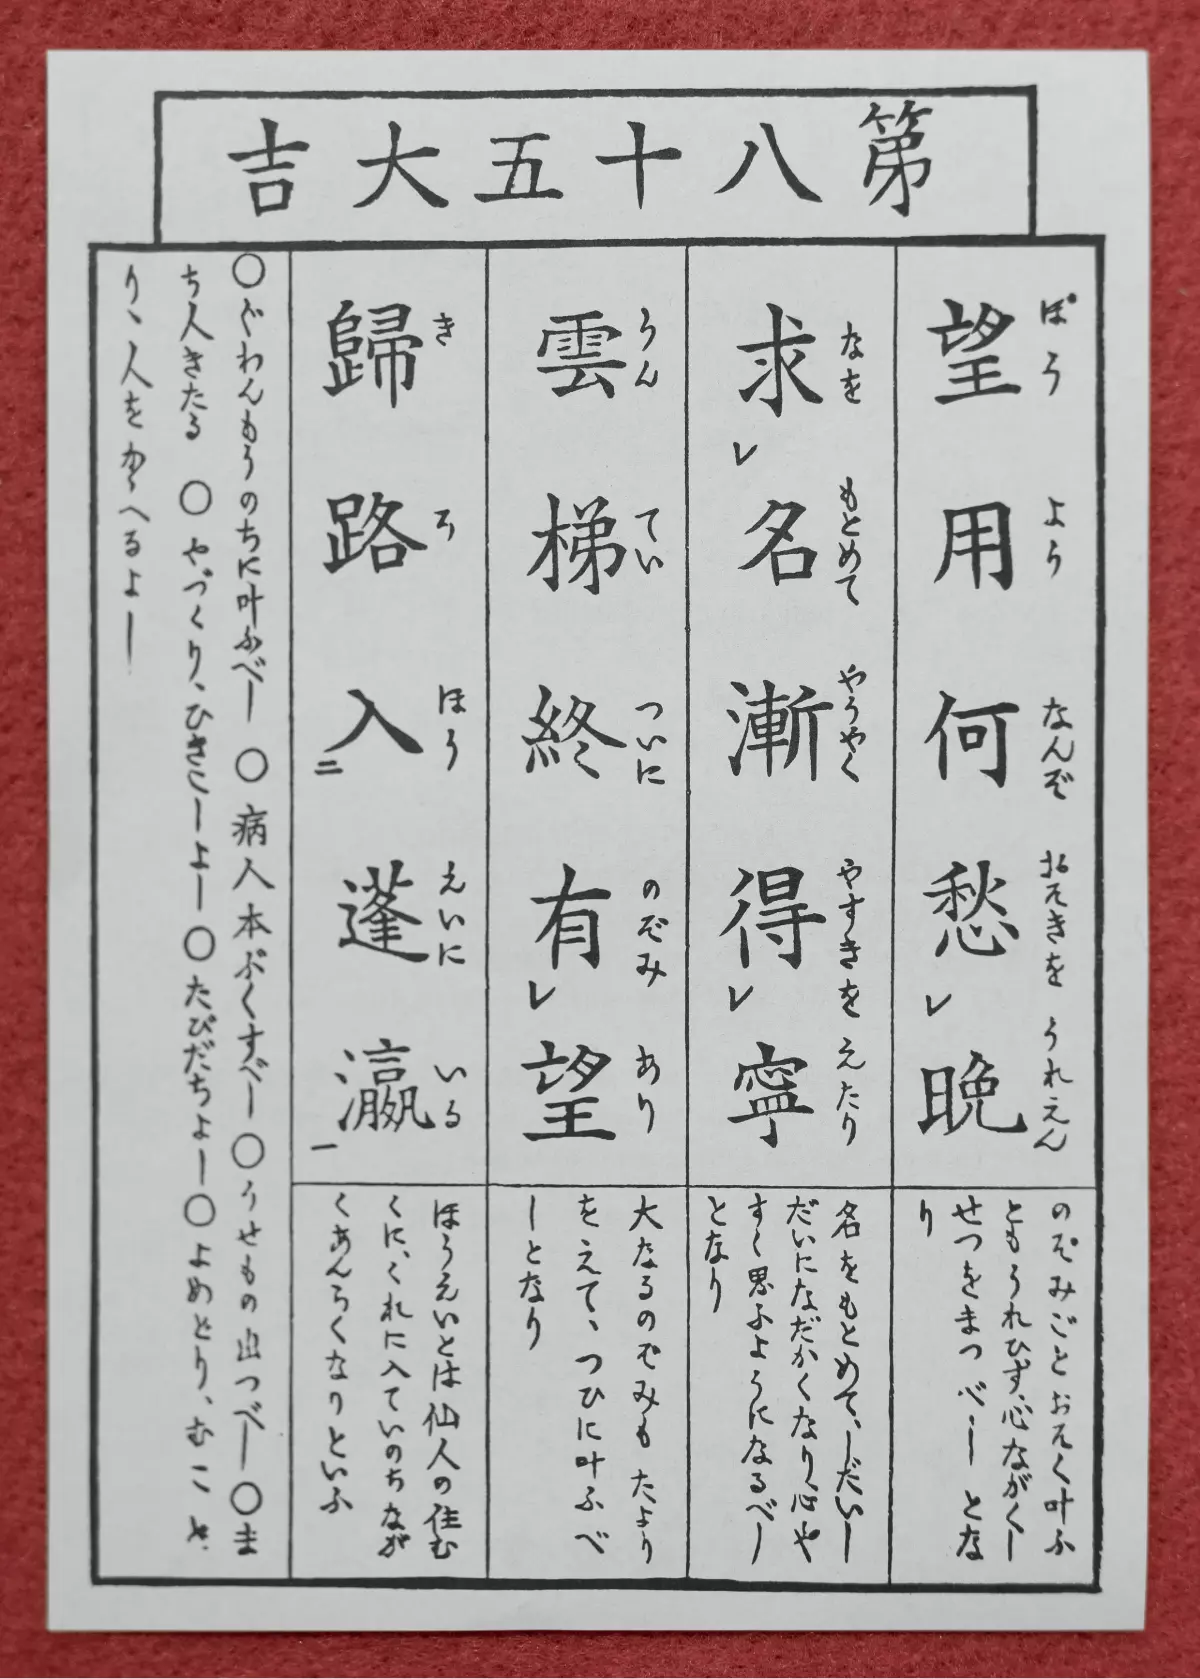 第八十五大吉
望用何愁レ晩
ぼう よう なんぞ おそきを うれえん
のぞみごとおそく叶ふ
ともうれひず、心ながくし
せつをまつべし とな
り
求レ名漸得レ寧
なを もとめて やうやく やすきを えたり
名をもとめて、しだいし
だいになだかくなり、心や
すく思ふようになるべし
となり
雲梯終有レ望
うん てい ついに のぞみ あり
大なるのぞみも たより
をえて、つひに叶ふべ
しとなり
歸路入二蓬瀛一
き ろ ほう えいに いる
ほうえいとは仙人の住む
くに、くれに入ていのちなが
くあんらくなりといふ
〇ぐわんもうのちに叶ふべし 〇病人本ぶくすべし 〇うせもの出つべし 〇ま
ち人きたる 〇やづくり、ひきこしよし 〇たびだちよし 〇よめとり、むこと
り、人をかゝへるよし